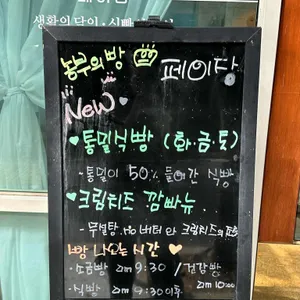 생활의 달인 · 식빵
농부의 빵 페이당
New
통밀식빵 (화·금·토)
- 통밀이 50% 들어간 식빵
크림치즈 깜빠뉴
- 무설탕. No 버터
빵 나오는 시간
· 소금빵 am 9:30 / 건강빵 am 10:00
· 식빵 am 9:30 이후